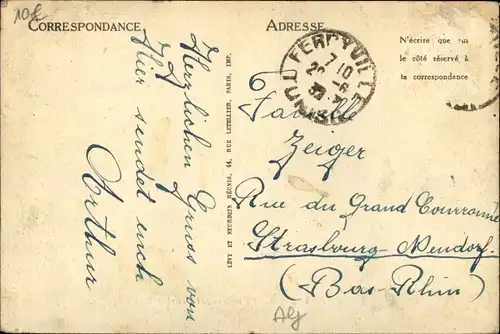 10f
CORRESPONDANCE
ADRESSE
N'écrire que sur
le côté réservé à
la correspondance
FERRYVILLE
7 10
TUNISIE
Herzlichen Gruss von
Hier sendet euch
Arthur
LEVY ET NEURDEIN RÉUNIS, 44, RUE LETELLIER, PARIS, IMP.
Famille
Zeiger
Rue du Grand Couronné
Strasbourg-Neudorf
(Bas-Rhin)
Alg